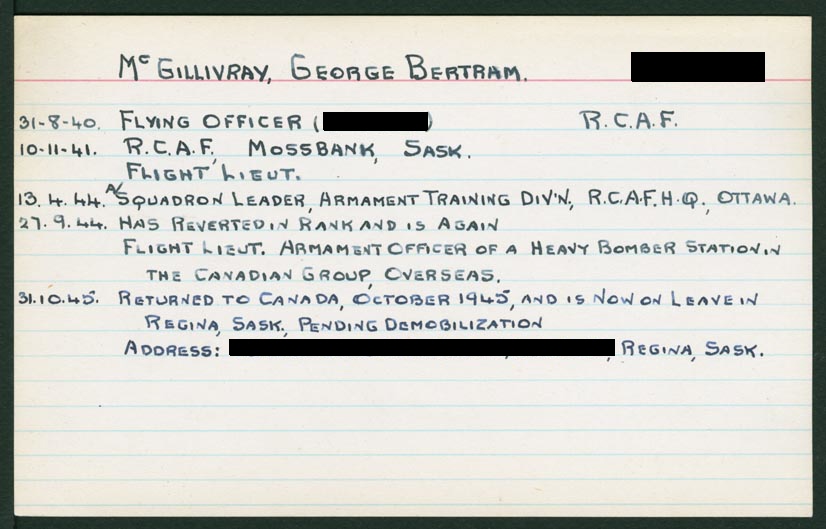 McGILLIVRAY, GEORGE BERTRAM.
31-8-40. FLYING OFFICER ( ) R.C.A.F.
10-11-41. R.C.A.F. MOSSBANK, SASK.
FLIGHT LIEUT.
13.4.44. A/SQUADRON LEADER, ARMAMENT TRAINING DIV'N, R.C.A.F. H.Q., OTTAWA.
27.9.44. HAS REVERTED IN RANK AND IS AGAIN
FLIGHT LIEUT. ARMAMENT OFFICER OF A HEAVY BOMBER STATION IN
THE CANADIAN GROUP, OVERSEAS.
31.10.45. RETURNED TO CANADA, OCTOBER 1945, AND IS NOW ON LEAVE IN
REGINA, SASK., PENDING DEMOBILIZATION
ADDRESS: , REGINA, SASK.